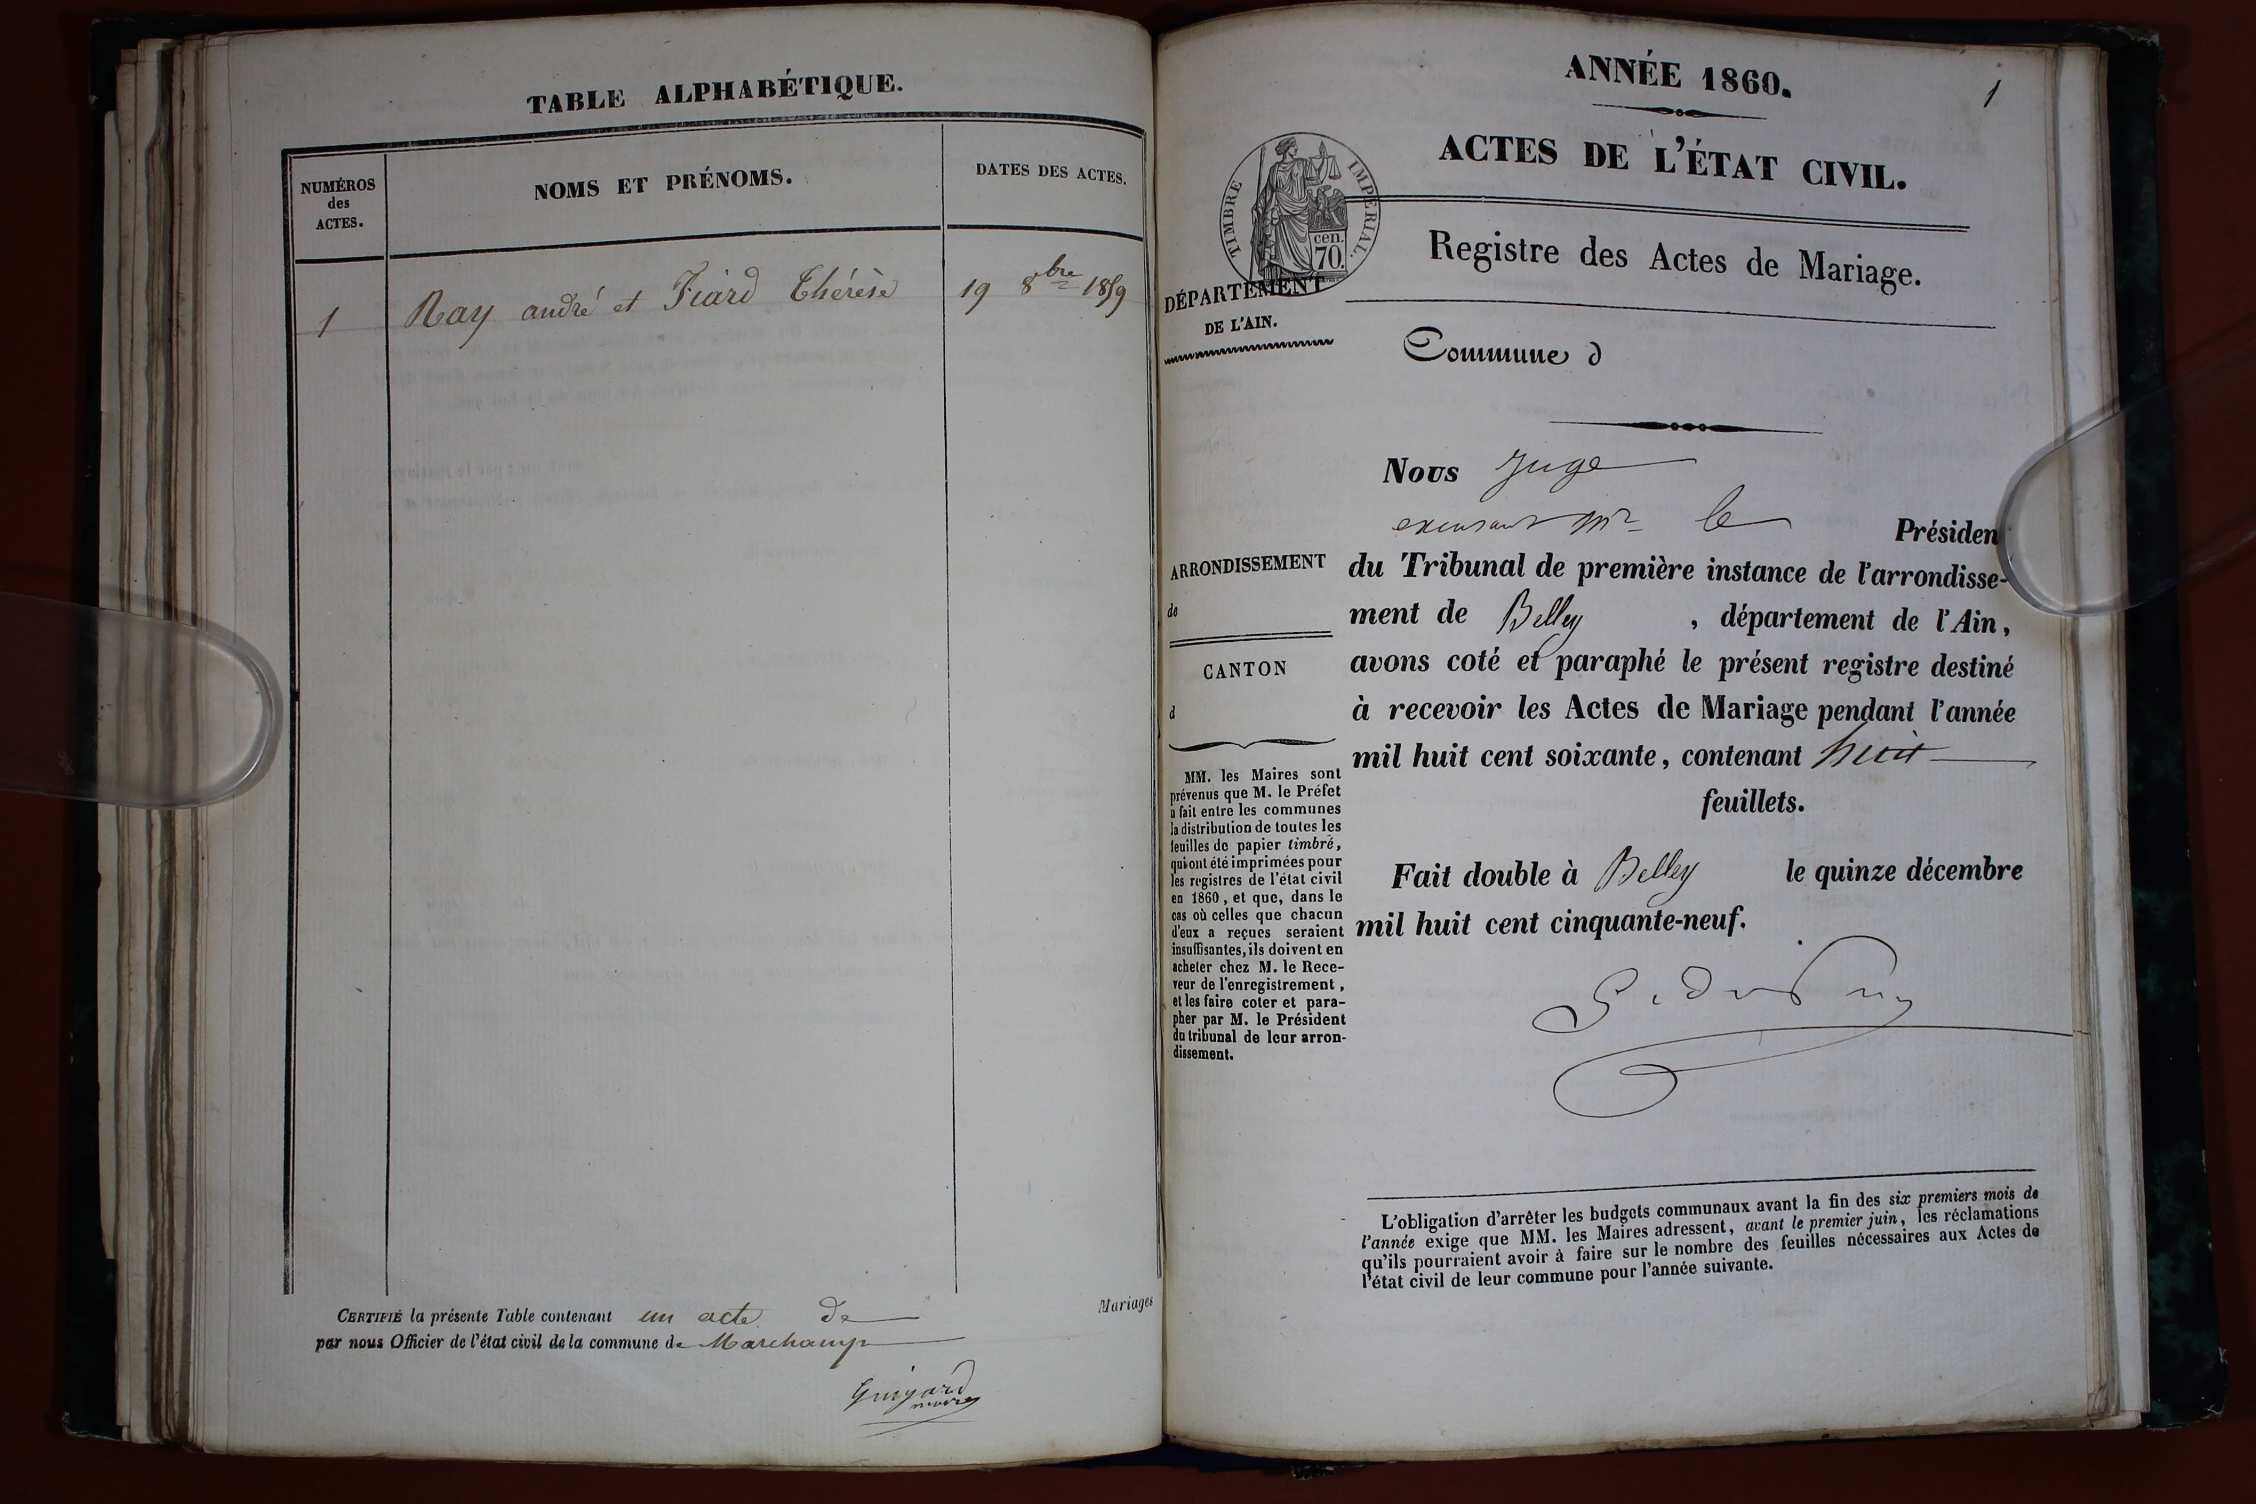 TABLE ALPHABÉTIQUE.
NUMÉROS
des
ACTES.
NOMS ET PRÉNOMS.
DATES DES ACTES.
1 Ray andré et Fiard Thérèse 19 8bre 1859
CERTIFIÉ la présente Table contenant un acte de Mariages
par nous Officier de l'état civil de la commune de Marchamp
Guigard
maire
1
ANNÉE 1860.
ACTES DE L'ÉTAT CIVIL.
TIMBRE IMPÉRIAL.
cen.
70.
Registre des Actes de Mariage.
DÉPARTEMENT
DE L'AIN.
Commune d
ARRONDISSEMENT
de
CANTON
d
MM. les Maires sont
prévenus que M. le Préfet
a fait entre les communes
la distribution de toutes les
feuilles de papier timbré,
qui ont été imprimées pour
les registres de l'état civil
en 1860, et que, dans le
cas où celles que chacun
d'eux a reçues seraient
insuffisantes, ils doivent en
acheter chez M. le Rece-
veur de l'enregistrement,
et les faire coter et para-
pher par M. le Président
du tribunal de leur arron-
dissement.
Nous Juge
mr le Présiden
du Tribunal de première instance de l'arrondisse-
ment de Belley, département de l'Ain,
avons coté et paraphé le présent registre destiné
à recevoir les Actes de Mariage pendant l'année
mil huit cent soixante, contenant huit
feuillets.
Fait double à Belley le quinze décembre
mil huit cent cinquante-neuf.
L'obligation d'arrêter les budgets communaux avant la fin des six premiers mois de
l'année exige que MM. les Maires adressent, avant le premier juin, les réclamations
qu'ils pourraient avoir à faire sur le nombre des feuilles nécessaires aux Actes de
l'état civil de leur commune pour l'année suivante.